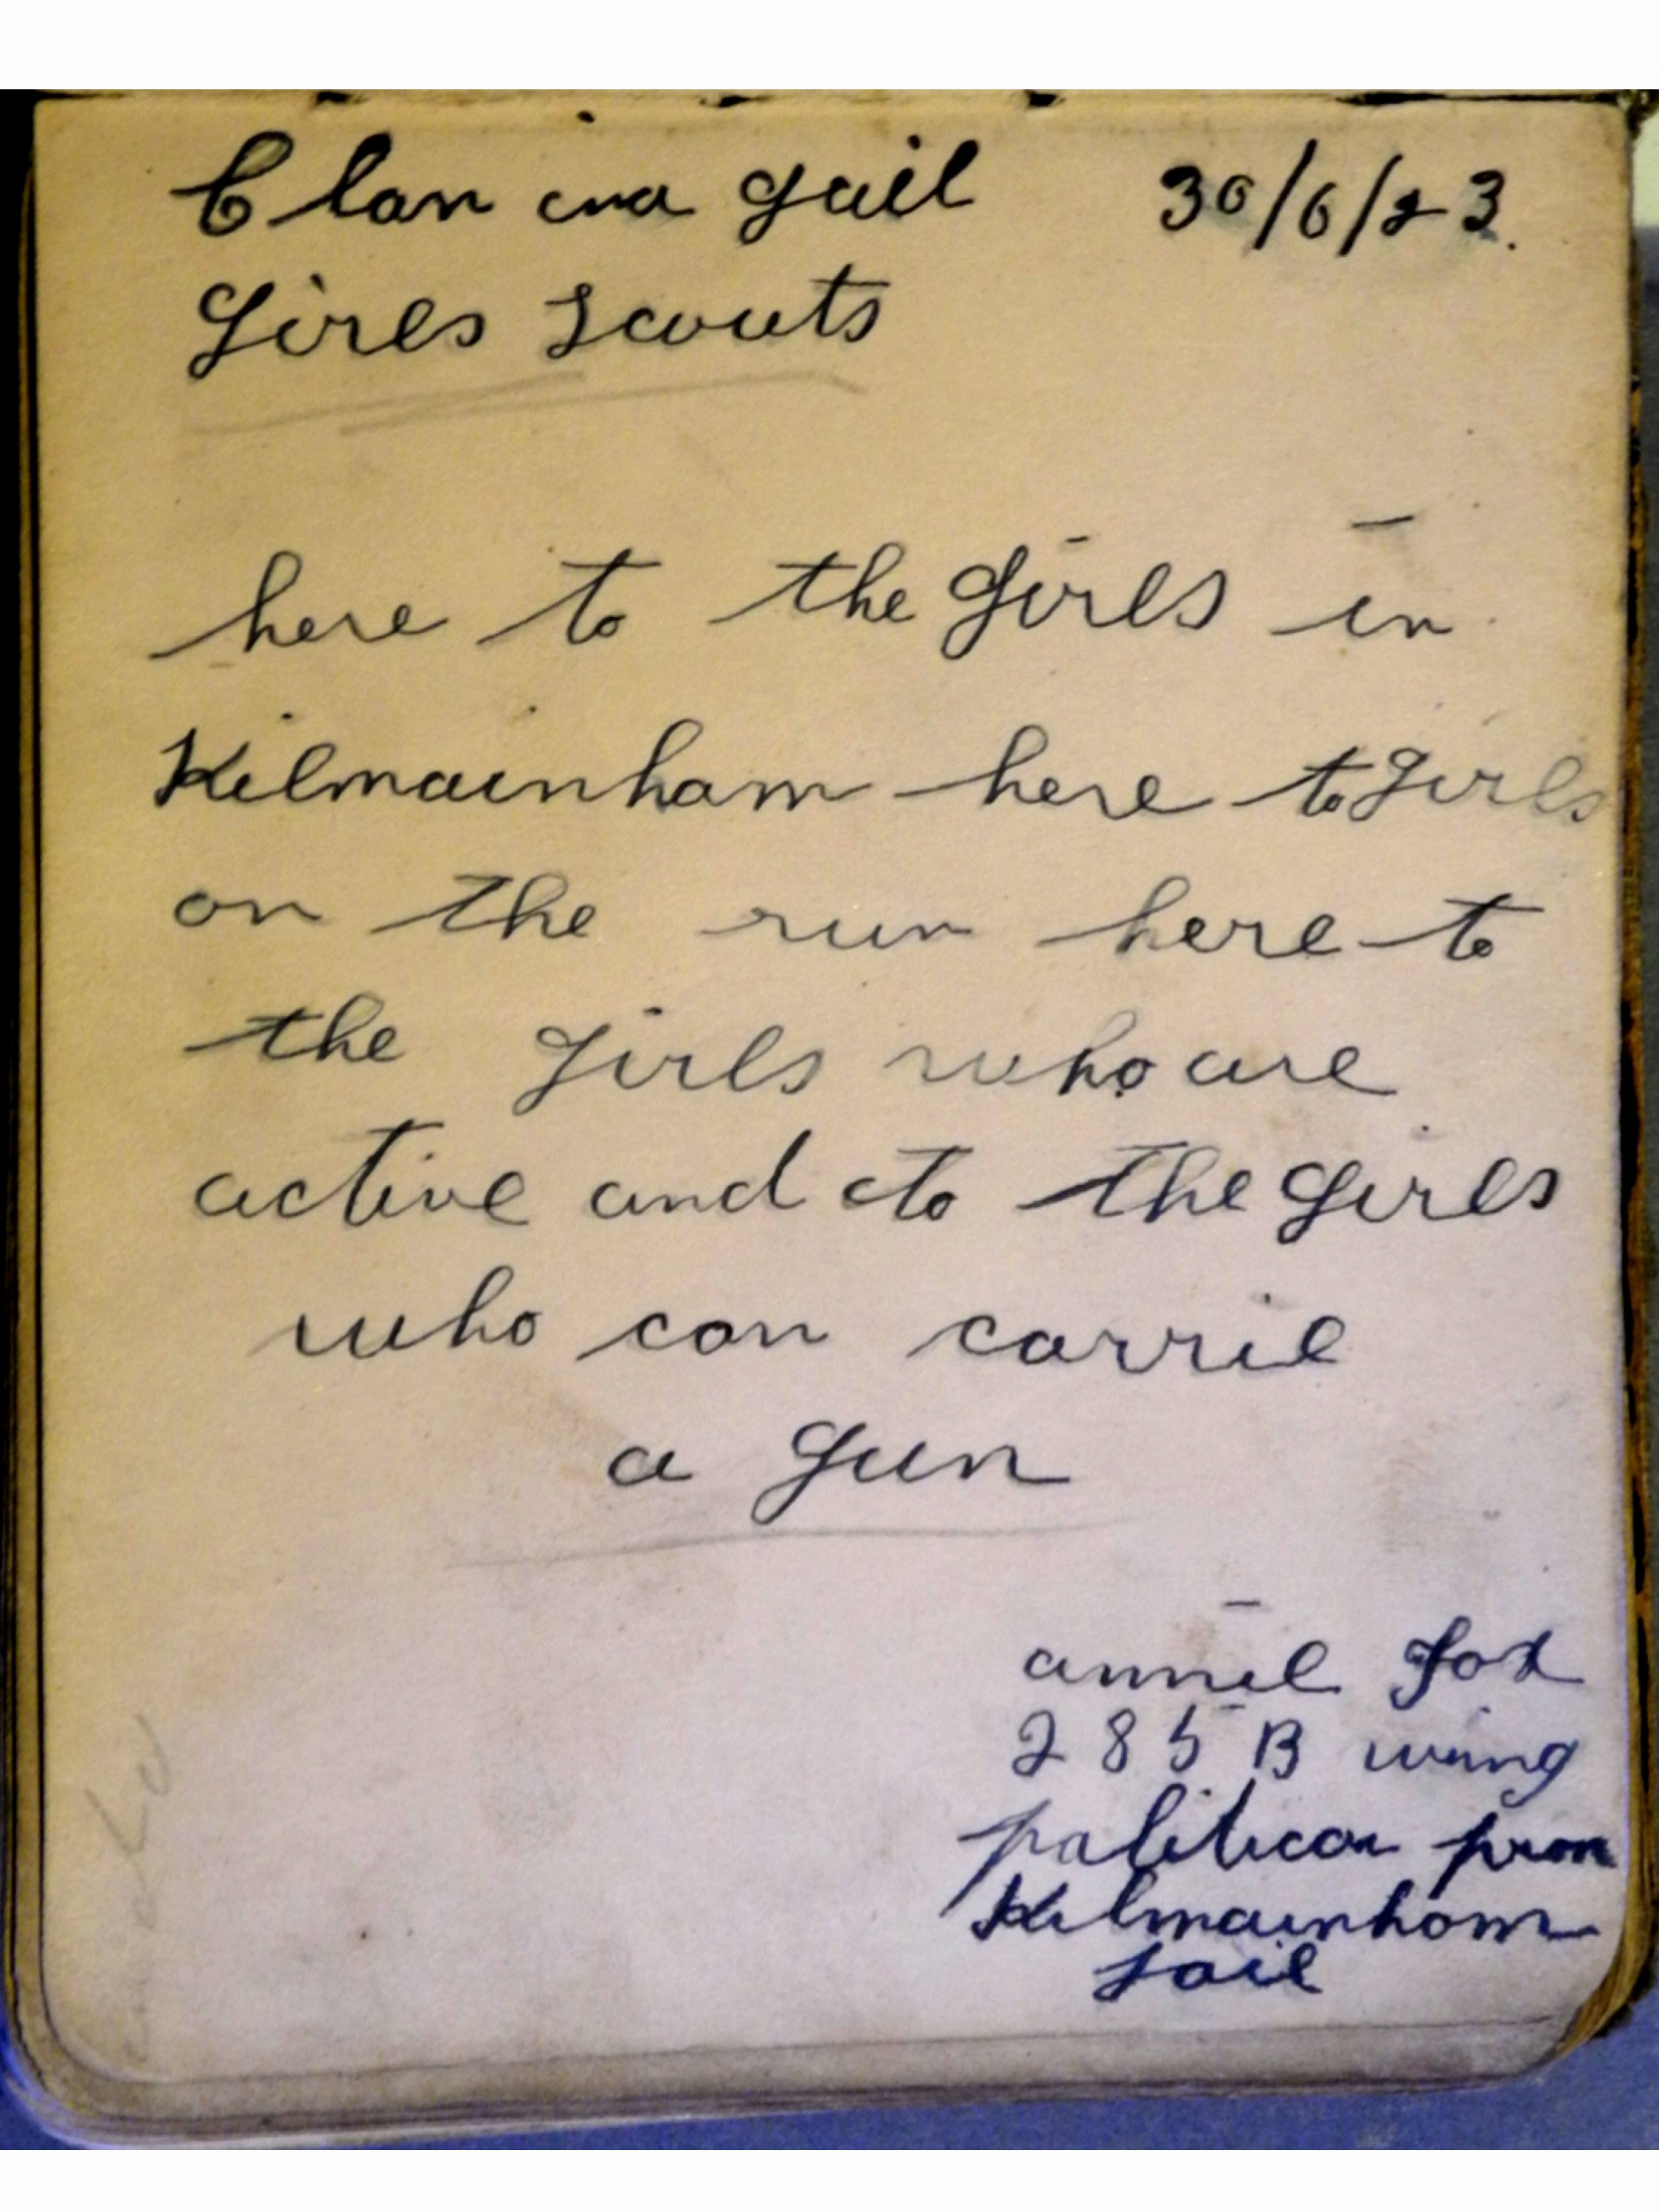 Clan na gail 30/6/23.
Girls Scouts
here to the Girls in
Kilmainham here to Girls
on the run here to
the Girls who are
active and to the Girls
who can carrie
a Gun
annie Fox
285 B wing
Kilmainham
Jail